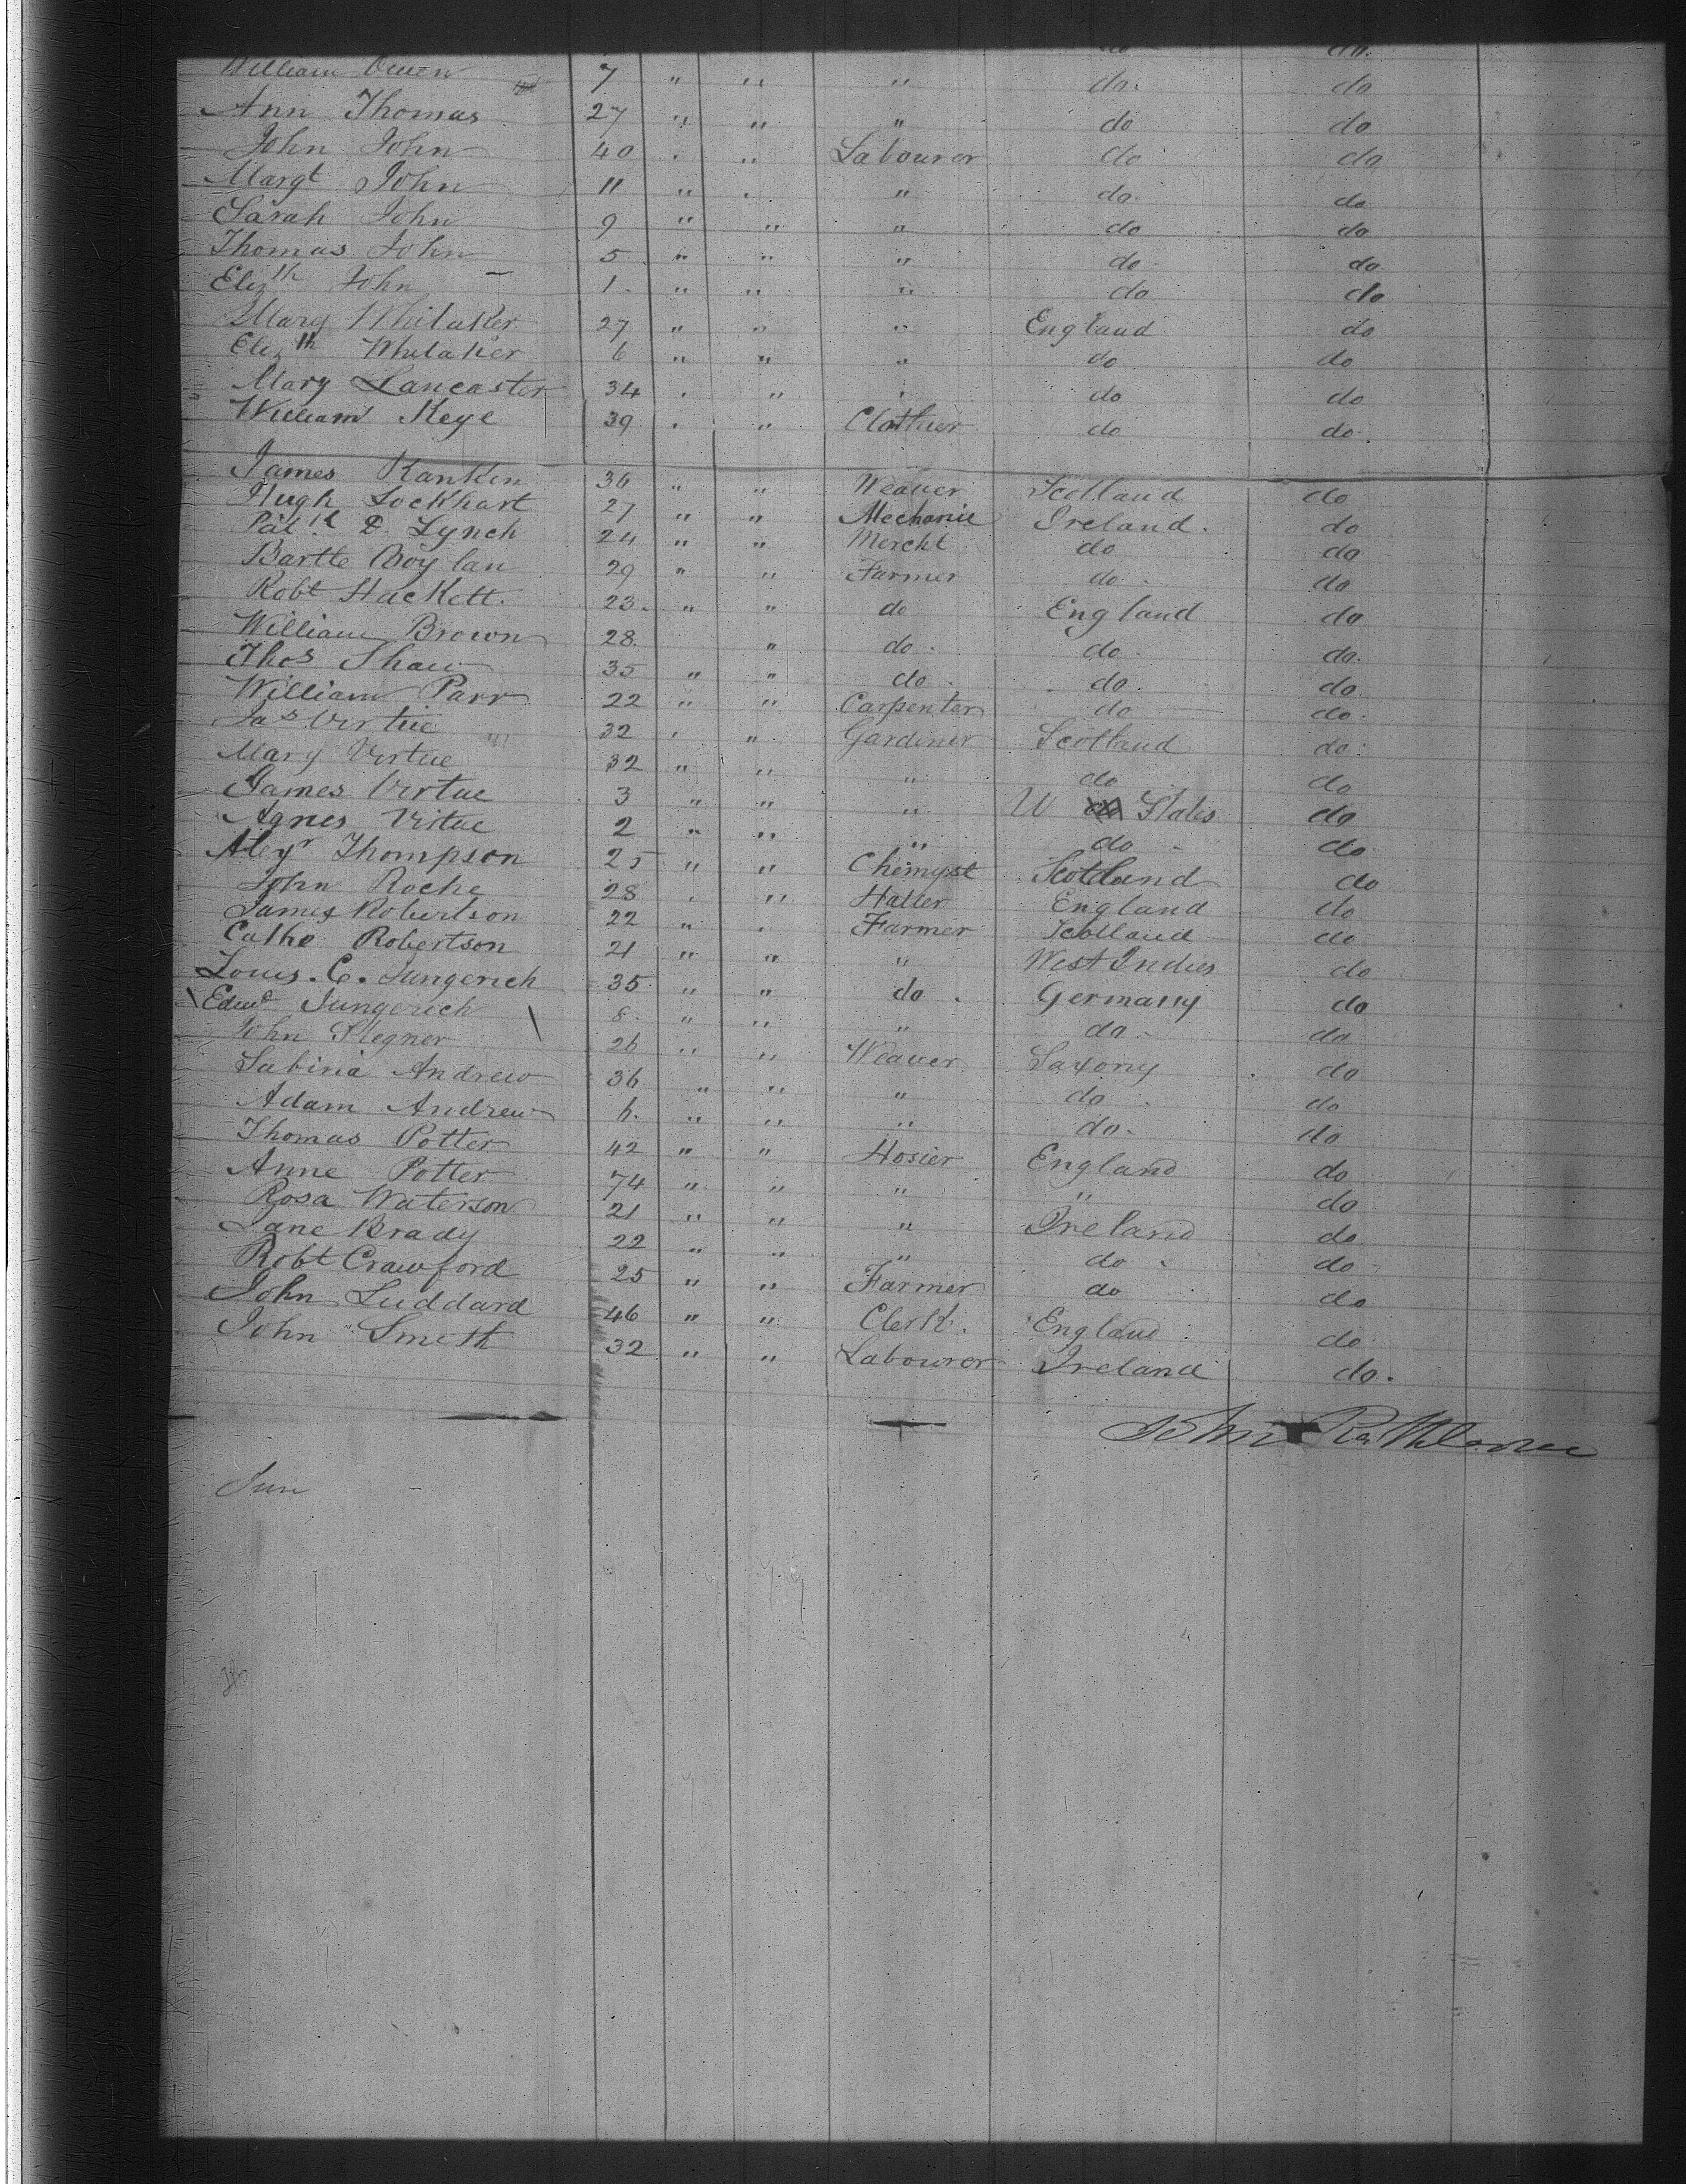 do do.
William Owen 7 " " " do. do
Ann Thomas 27 " " " do do
John John 40 " " Labourer do do
Margt John 11 " " " do. do
Sarah John 9 " " " do do
Thomas John 5 " " " do do
Elizth John 1 " " " do do
Mary Whitaker 27 " " " England do
Elizth Whitaker 6 " " " do do
Mary Lancaster 34 " " " do do
William Keye 39 " " Clothier do do
James Rankin 36 " " Weaver Scotland do
Hugh Lockhart 27 " " Mechanic Ireland. do
Patk D. Lynch 24 " " Mercht do do
Bartle Boylan 29 " " Farmer do do
Robt Hackett. 23. " " do England do
William Brown 28. " do. do. do.
Thos Shaw 35 " " do. do. do
William Parr 22 " " Carpenter do do.
Jas Virtue 32 " " Gardiner Scotland do.
Mary Virtue 32 " " " do do
James Virtue 3 " " " U States do
Agnes Virtue 2 " " " do do
Alexr Thompson 25 " " Chemyst Scotland do
John Roche 28 " " Hatter England do
James Robertson 22 " " Farmer Scotland do
Cathe Robertson 21 " " " West Indies do
Louis. C. Jungerich 35 " " do. Germany do
Edwd Jungerich 8. " " " do. do
John Stegner 26 " " Weaver Saxony do
Sabina Andrew 36 " " " do do
Adam Andrew 6. " " " do. do
Thomas Potter 42 " " Hosier England do
Anne Potter 74 " " " " do
Rosa Waterson 21 " " " Ireland do
Jane Brady 22 " " " do. do
Robt Crawford 25 " " Farmer do do
John Luddard 46 " " Clerk. England do
John Smith 32 " " Labourer Ireland do.
John
Jun